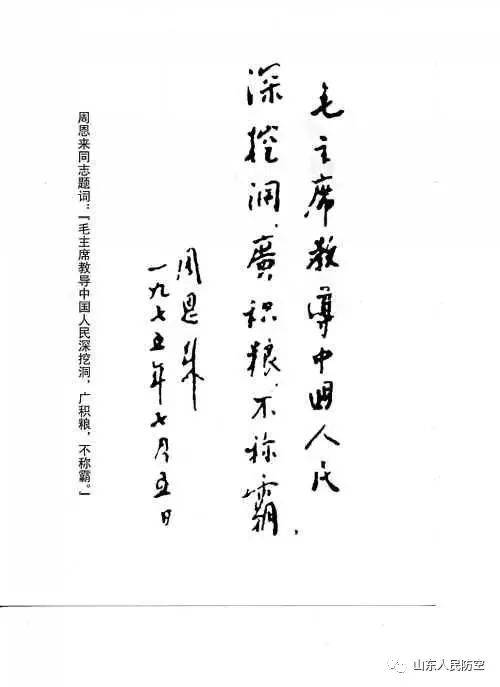 毛主席教导中国人民
深挖洞，廣积粮，不称霸。
周恩来
一九七五年七月五日
周恩来同志题词：“毛主席教导中国人民深挖洞，广积粮，不称霸。”
山东人民防空